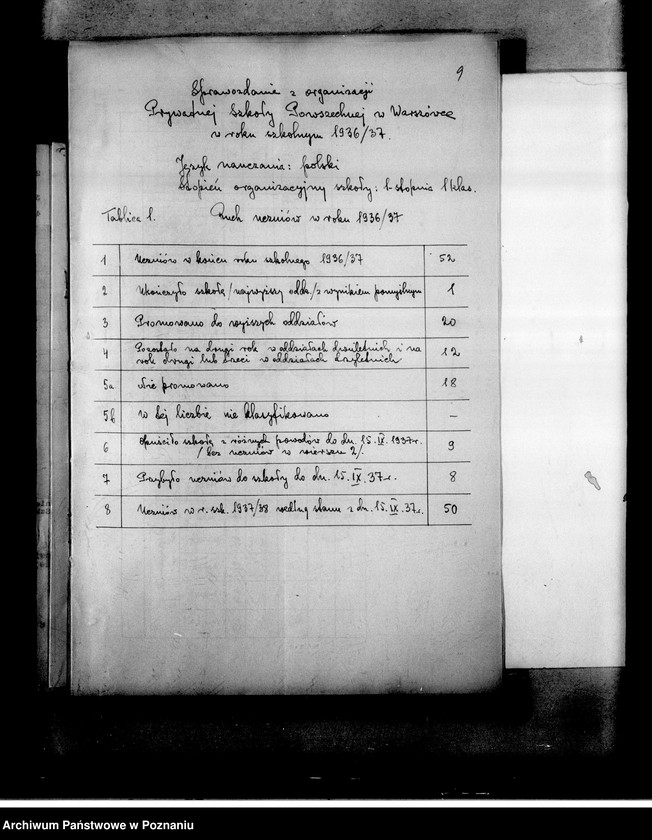 9
Sprawozdanie z organizacji
Prywatnej Szkoły Powszechnej w Warszówce
w roku szkolnym 1936/37.
Język nauczania: polski
Stopień organizacyjny szkoły: I-stopnia 1 klas.
Tablica 1. Ruch uczniów w roku 1936/37
1 Uczniów w końcu roku szkolnego 1936/37 52
2 Ukończyło szkołę /najwyższy oddz./ z wynikiem pomyślnym 1
3 Promowano do wyższych oddziałów 20
4 Pozostało na drugi rok w oddziałach dwuletnich i na
rok drugi lub trzeci w oddziałach trzyletnich 12
5a Nie promowano 18
5b w tej liczbie nie klasyfikowano –
6 Opuściło szkołę z różnych powodów do dn. 15.IX.1937r.
/bez uczniów w wierszu 2/. 9
7 Przybyło uczniów do szkoły do dn. 15.IX.37r. 8
8 Uczniów w r. szk. 1937/38 według stanu z dn. 15.IX.37r. 50
Archiwum Państwowe w Poznaniu